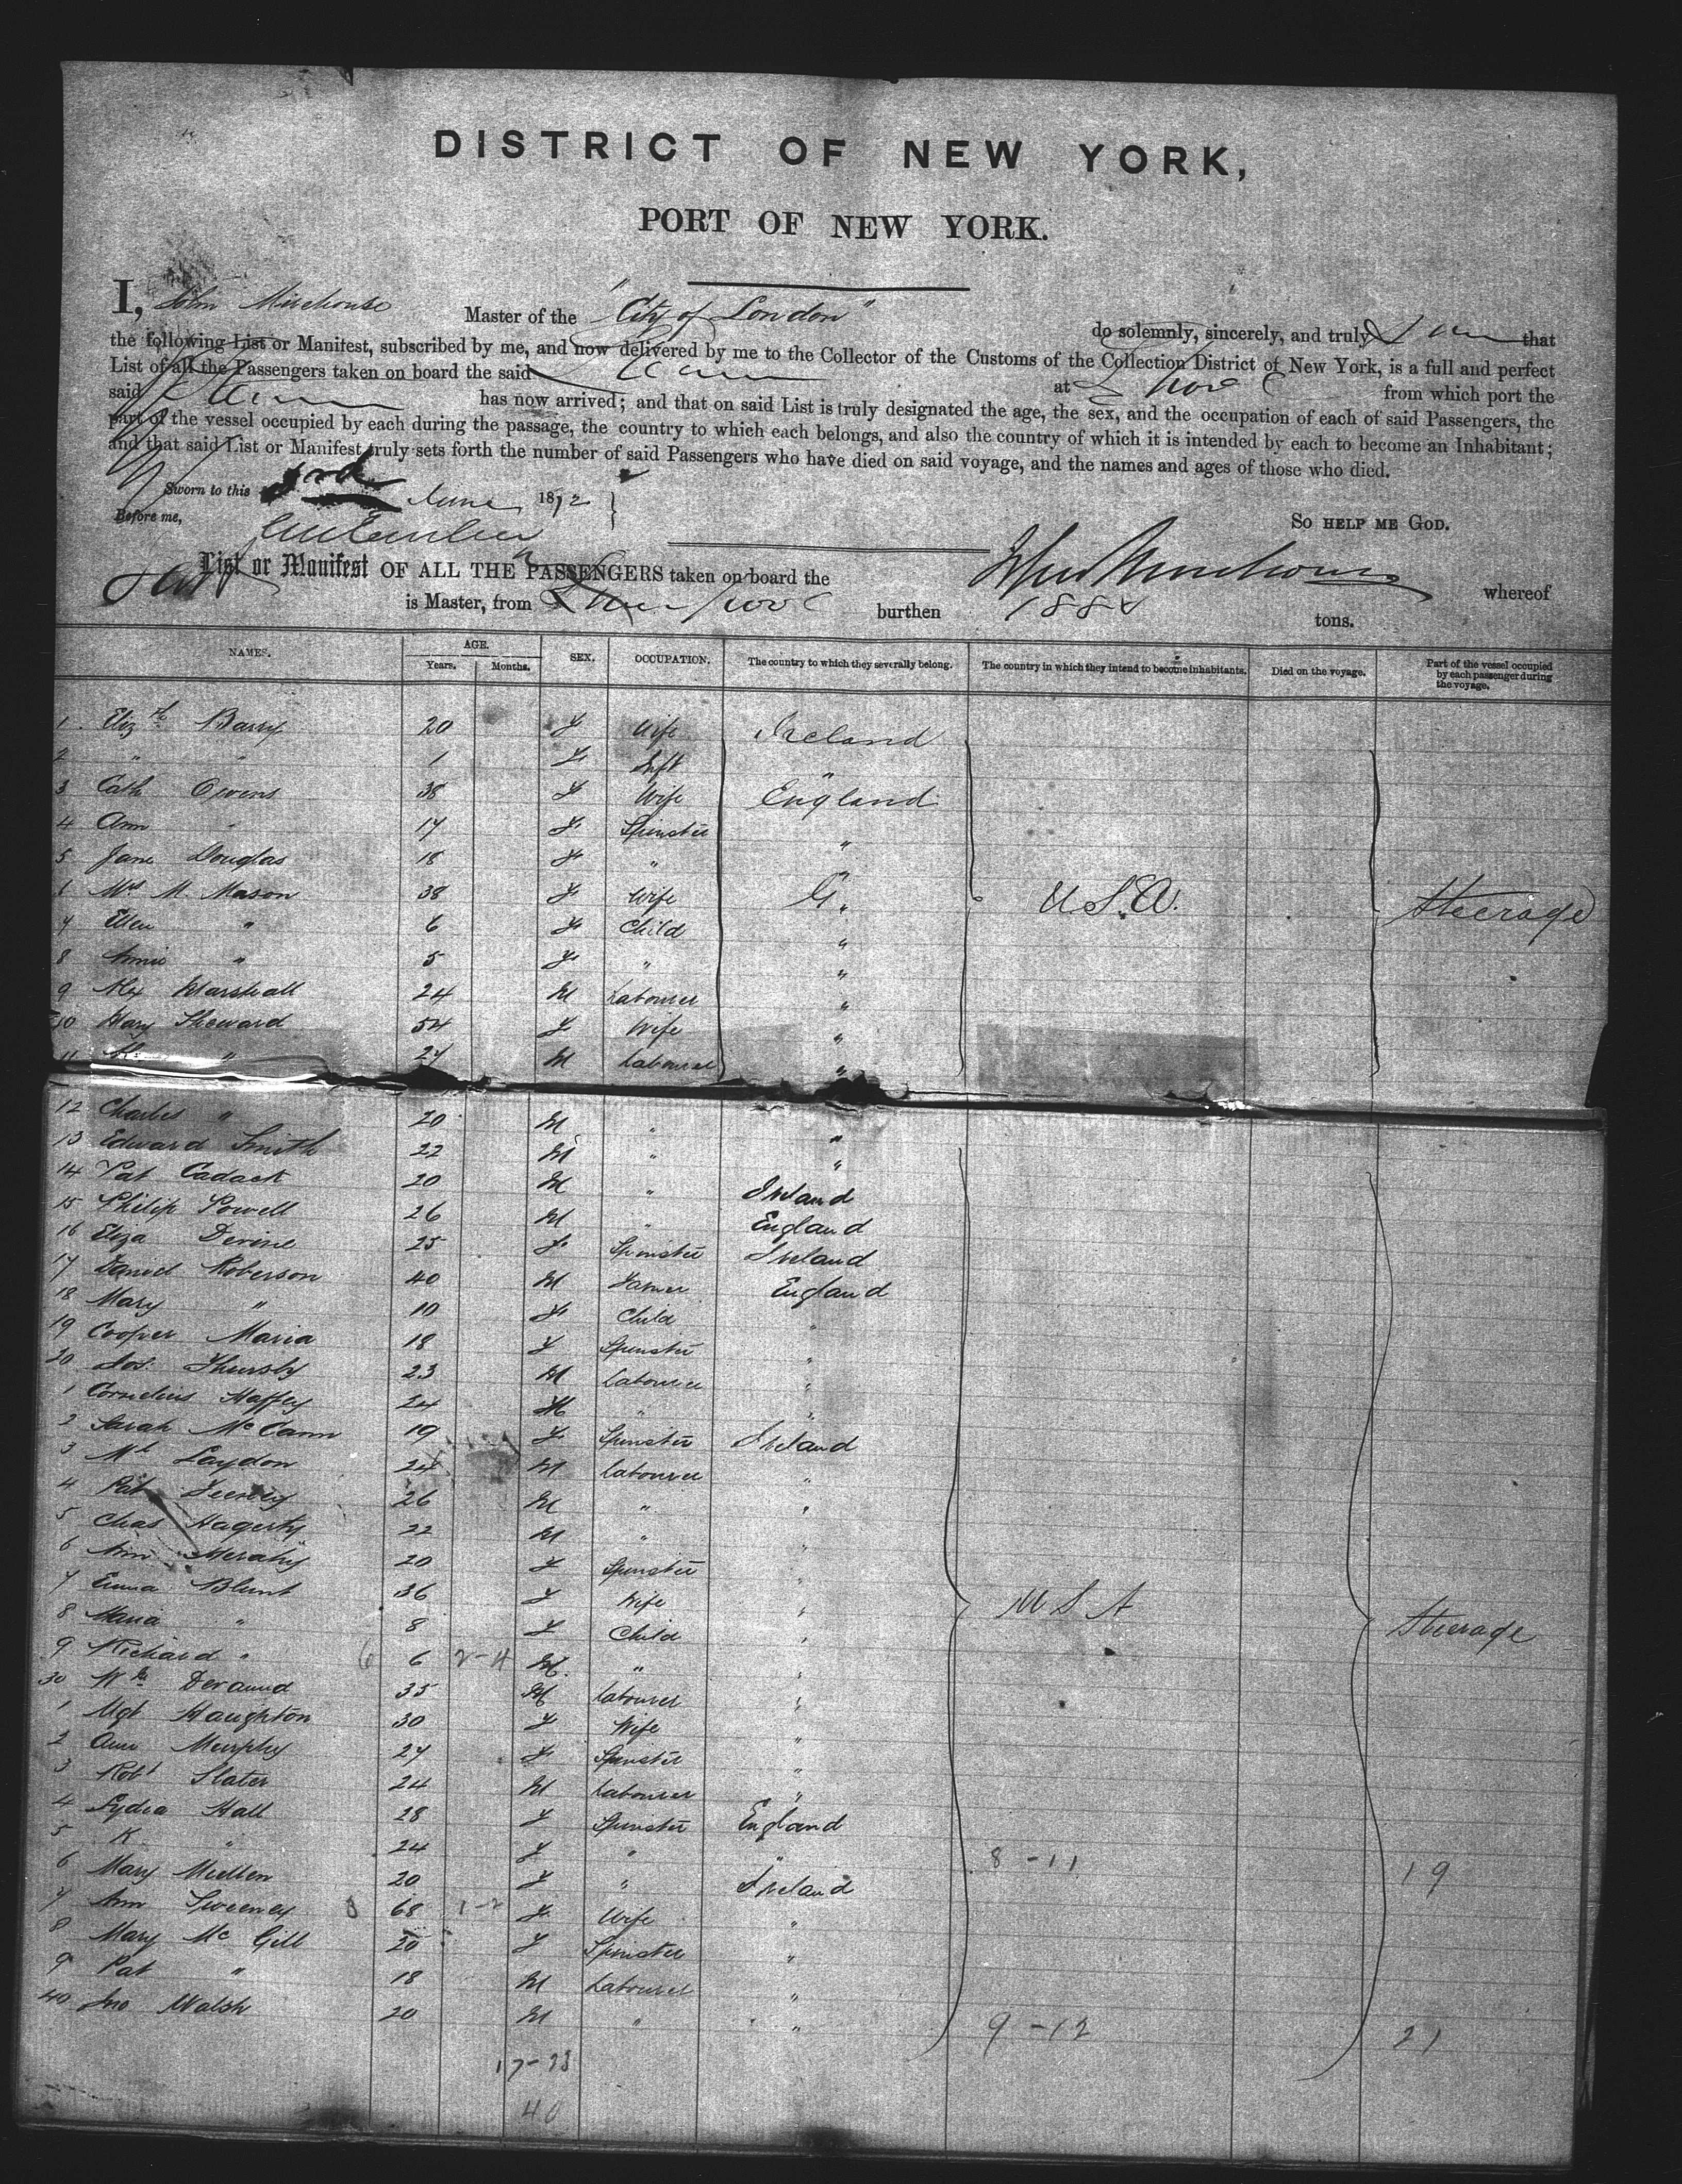 DISTRICT OF NEW YORK,
PORT OF NEW YORK.
I, John Mirehouse Master of the "City of London" do solemnly, sincerely, and truly that
the following List or Manifest, subscribed by me, and now delivered by me to the Collector of the Customs of the Collection District of New York, is a full and perfect
List of all the Passengers taken on board the said at L'pool from which port the
said has now arrived; and that on said List is truly designated the age, the sex, and the occupation of each of said Passengers, the
part of the vessel occupied by each during the passage, the country to which each belongs, and also the country of which it is intended by each to become an Inhabitant;
and that said List or Manifest truly sets forth the number of said Passengers who have died on said voyage, and the names and ages of those who died.
Sworn to this June 1872
Before me, SO HELP ME GOD.
List or Manifest OF ALL THE PASSENGERS taken on board the whereof
John Mirehouse
is Master, from Liverpool burthen 1884 tons.
NAMES. AGE. Years. Months. SEX. OCCUPATION. The country to which they severally belong. The country in which they intend to become inhabitants. Died on the voyage. Part of the vessel occupied by each passenger during the voyage.
1 Elizth Barry 20 F Wife Ireland
2 " " 1 F Inft "
3 Cath Owens 38 F Wife England
4 Ann " 17 F Spinster "
5 Jane Douglas 18 F " "
6 Mrs M. Mason 38 F Wife " U.S.A. Steerage
7 Ellen " 6 F Child "
8 Annie " 5 F " "
9 Alex Marshall 24 M Labourer "
10 Mary Steward 54 F Wife "
11 " 27 M Labourer "
12 Charles " 20 M " "
13 Edward Smith 22 M " "
14 Pat Cadack 20 M " Ireland
15 Philip Powell 26 M " England
16 Eliza Devine 25 F Spinster Ireland
17 Daniel Roberson 40 M Farmer England
18 Mary " 10 F Child "
19 Cooper Maria 18 F Spinster "
20 Jos. Thursby 23 M Labourer "
1 Cornelius Haffey 24 M " "
2 Sarah McCann 19 F Spinster Ireland
3 Ml Laydon 24 M Labourer "
4 Pat 26 M " "
5 Chas Hagerty 22 M " "
6 Ann 20 F Spinster "
7 Emma Blunt 36 F Wife " U S A Steerage
8 Maria " 8 F Child "
9 Richard " 6 6 2-4 M. " "
30 Wm 35 M Labourer "
1 Mgt Haughton 30 F Wife "
2 Ann Murphy 27 F Spinster "
3 Robt Slater 24 M Labourer "
4 Lydia Hall 28 F Spinster England
5 K " 24 F " " 8-11 19
6 Mary Mullen 20 F " Ireland
7 Ann Sweeney 3 68 1-2 F Wife "
8 Mary McGill 20 F Spinster "
9 Pat " 18 M Labourer "
40 Jno Walsh 20 M " " 9-12 21
17-23
40